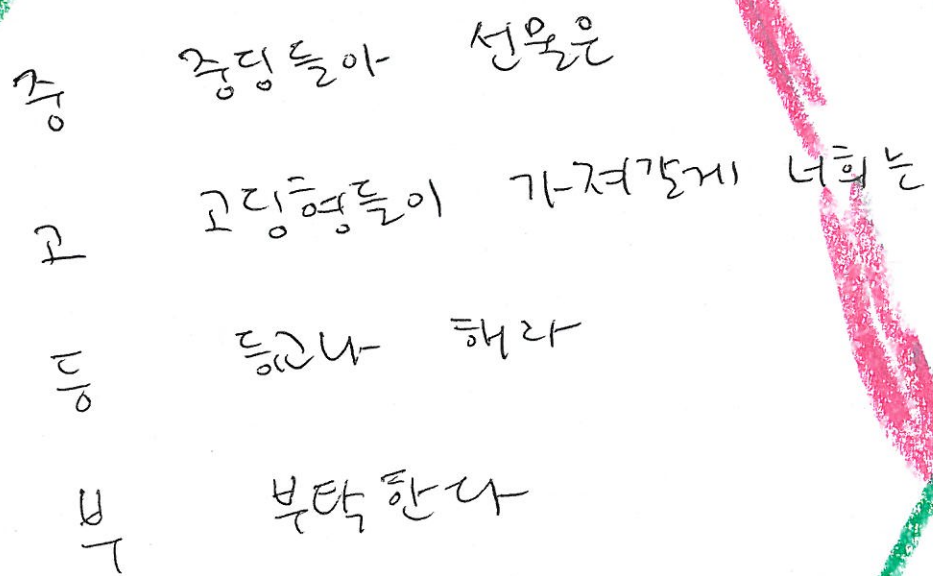 중 중딩들아 선물은
고 고딩형들이 가져갈게 너희는
등 등교나 해라
부 부탁한다